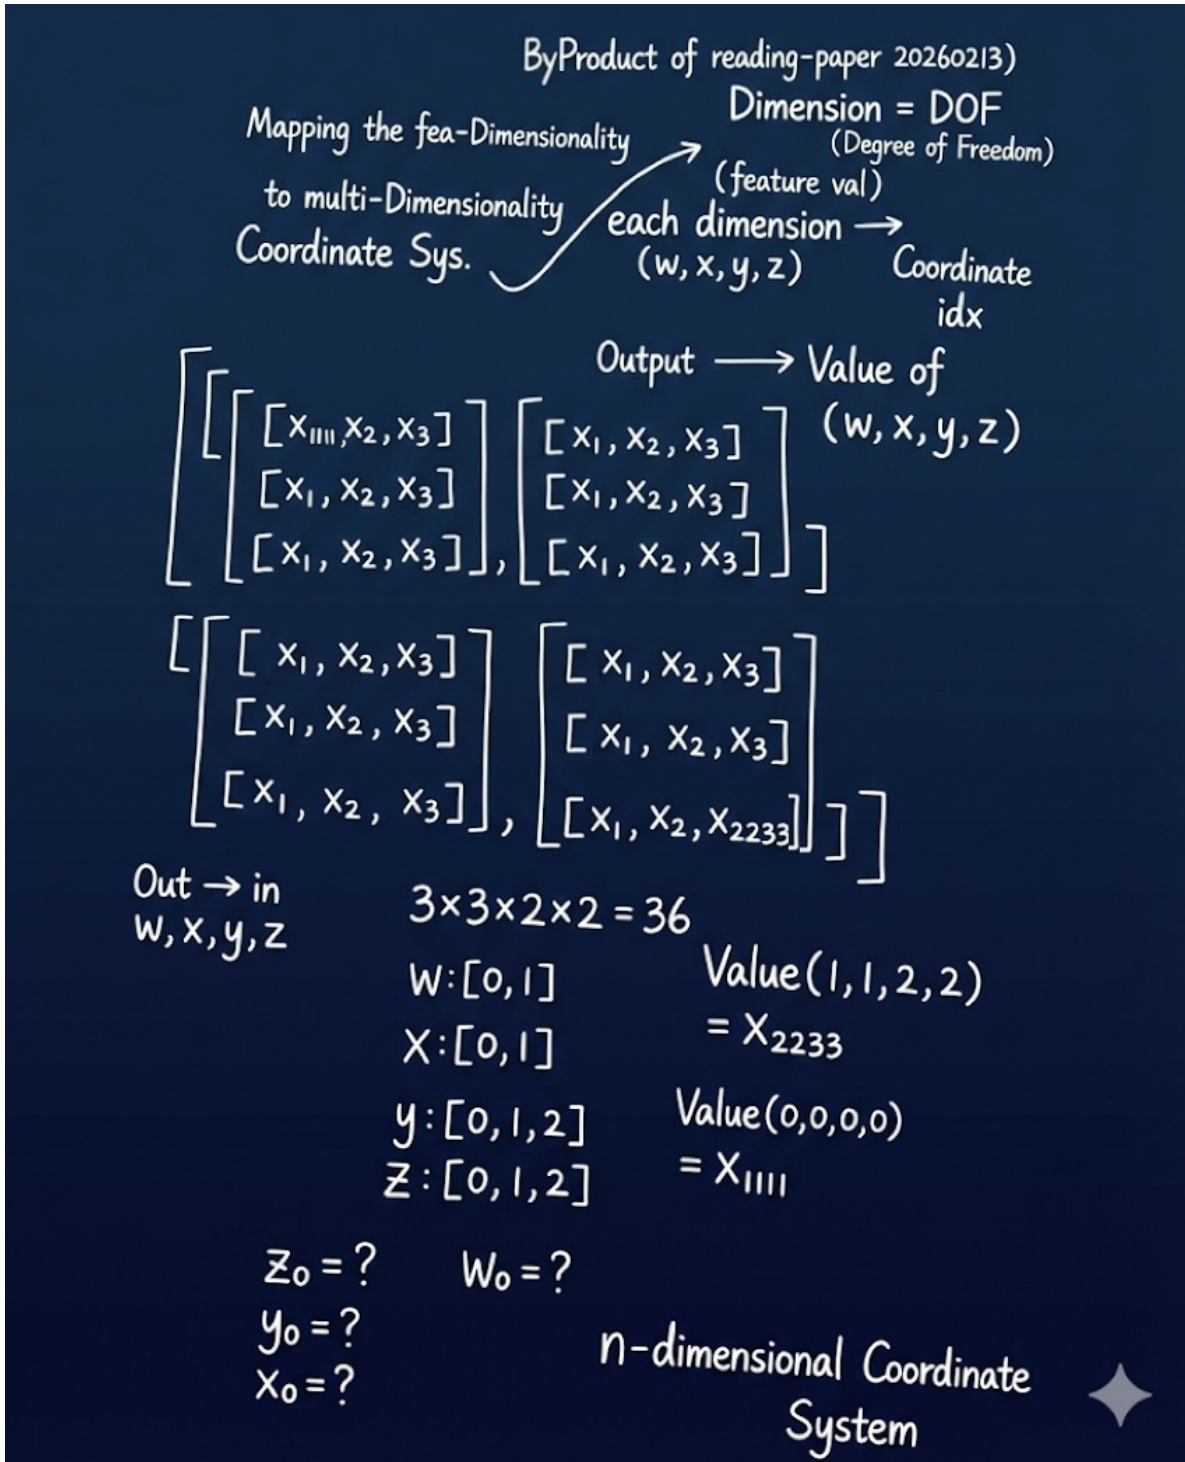 ByProduct of reading-paper 20260213)
Dimension = DOF
(Degree of Freedom)
Mapping the fea-Dimensionality
to multi-Dimensionality
Coordinate Sys.
(feature val)
each dimension →
(w, x, y, z)
Coordinate
idx
Output → Value of
(w, x, y, z)
[[[[x₁₁₁₁, x₂, x₃]
[x₁, x₂, x₃]
[x₁, x₂, x₃]],
[[x₁, x₂, x₃]
[x₁, x₂, x₃]
[x₁, x₂, x₃]]]
[[[x₁, x₂, x₃]
[x₁, x₂, x₃]
[x₁, x₂, x₃]],
[[x₁, x₂, x₃]
[x₁, x₂, x₃]
[x₁, x₂, x₂₂₃₃]]]]
Out → in
w, x, y, z
3×3×2×2 = 36
W:[0,1]
X:[0,1]
y:[0,1,2]
Z:[0,1,2]
Value(1,1,2,2)
= X₂₂₃₃
Value(0,0,0,0)
= X₁₁₁₁
Z₀ = ?
y₀ = ?
X₀ = ?
W₀ = ?
n-dimensional Coordinate
System